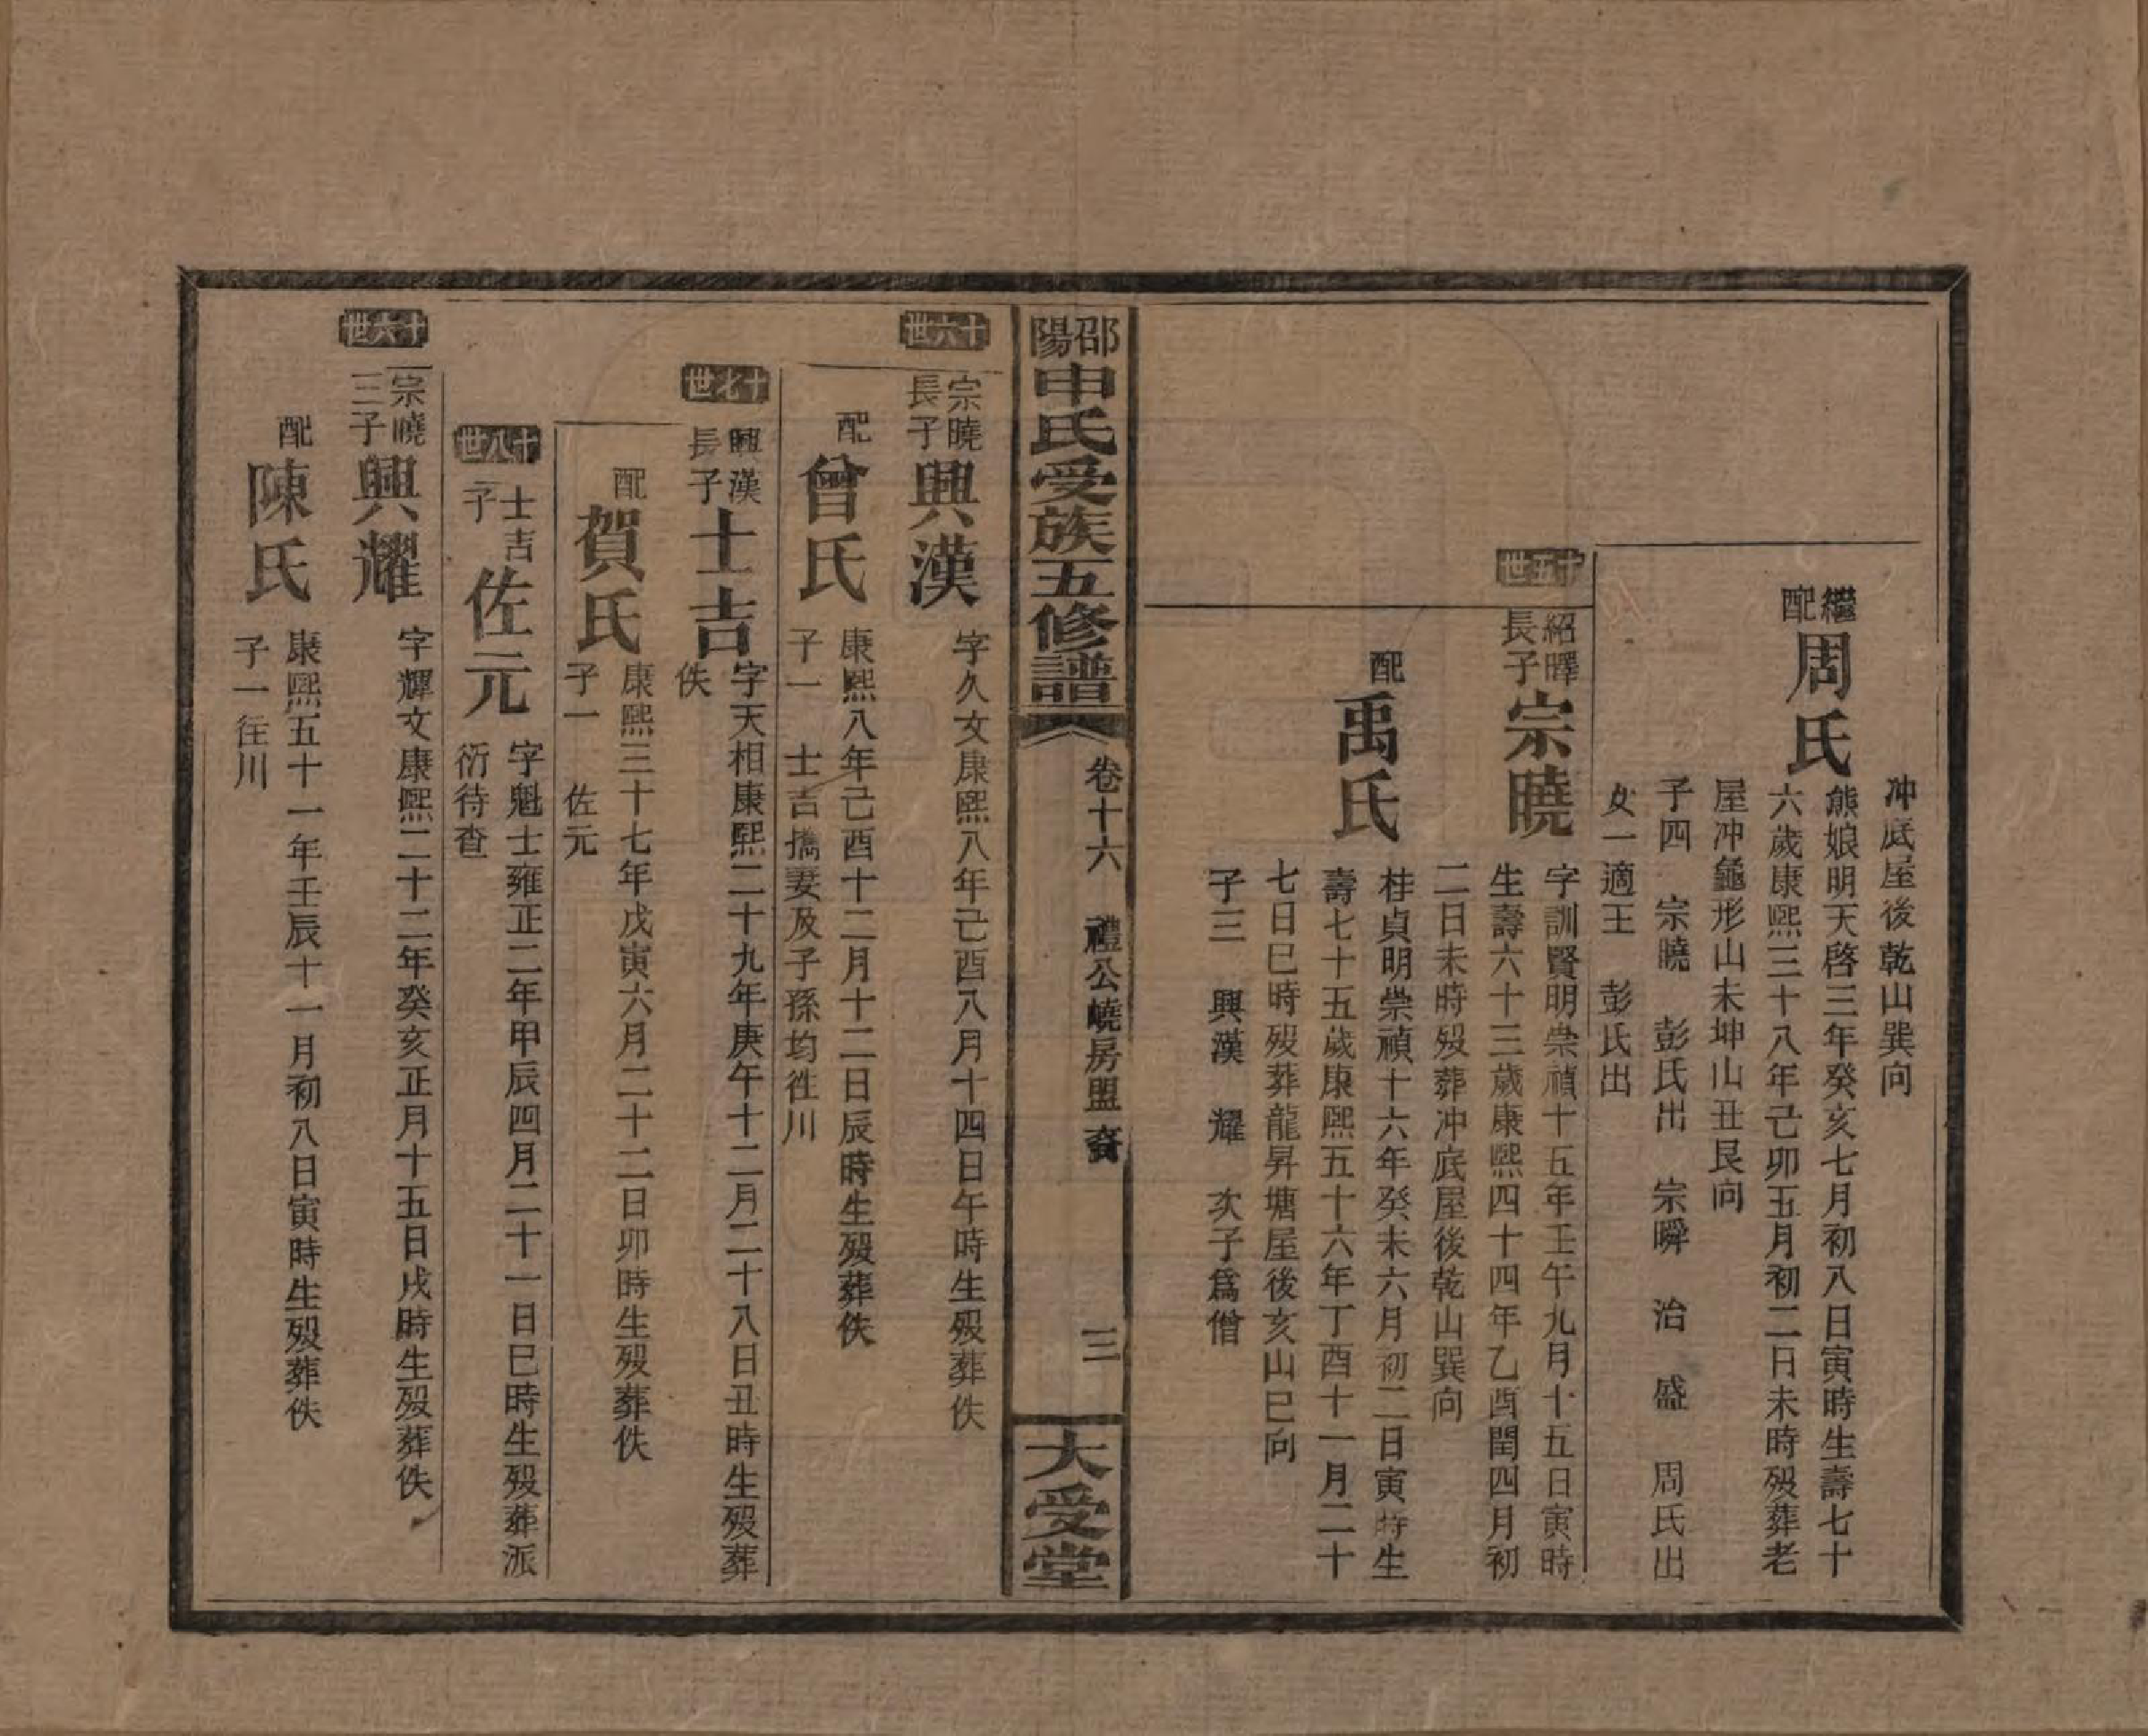 冲底屋後乾山巽向
繼配周氏
熊娘明天啓三年癸亥七月初八日寅時生壽七十
六歲康熙三十八年己卯五月初二日未時歿葬老
屋冲龜形山未坤山丑艮向
子四 宗曉 彭氏出 宗瞬 治 盛 周氏出
女一適王 彭氏出
十五世
紹曙長子宗曉
字訓賢明崇禎十五年壬午九月十五日寅時
生壽六十三歲康熙四十四年乙酉閏四月初
二日未時歿葬冲底屋後乾山巽向
配禹氏
桂貞明崇禎十六年癸未六月初二日寅時生
壽七十五歲康熙五十六年丁酉十一月二十
七日巳時歿葬龍昇塘屋後亥山巳向
子三 興漢 耀 次子爲僧
邵陽申氏受族五修譜
卷十六 禮公嶢房盟裔
三
大受堂
十六世
宗曉長子興漢
字久文康熙八年己酉八月十四日午時生歿葬佚
配曾氏
康熙八年己酉十二月十二日辰時生歿葬佚
子一 士吉攜妻及子孫均徃川
十七世
興漢長子士吉
字天相康熙二十九年庚午十二月二十八日丑時生歿葬
佚
配賀氏
康熙三十七年戊寅六月二十二日卯時生歿葬佚
子一 佐元
十八世
士吉子佐元
字魁士雍正二年甲辰四月二十一日巳時生歿葬派
衍待查
十六世
宗曉三子興耀
字輝文康熙二十二年癸亥正月十五日戌時生歿葬佚
配陳氏
康熙五十一年壬辰十一月初八日寅時生歿葬佚
子一徃川